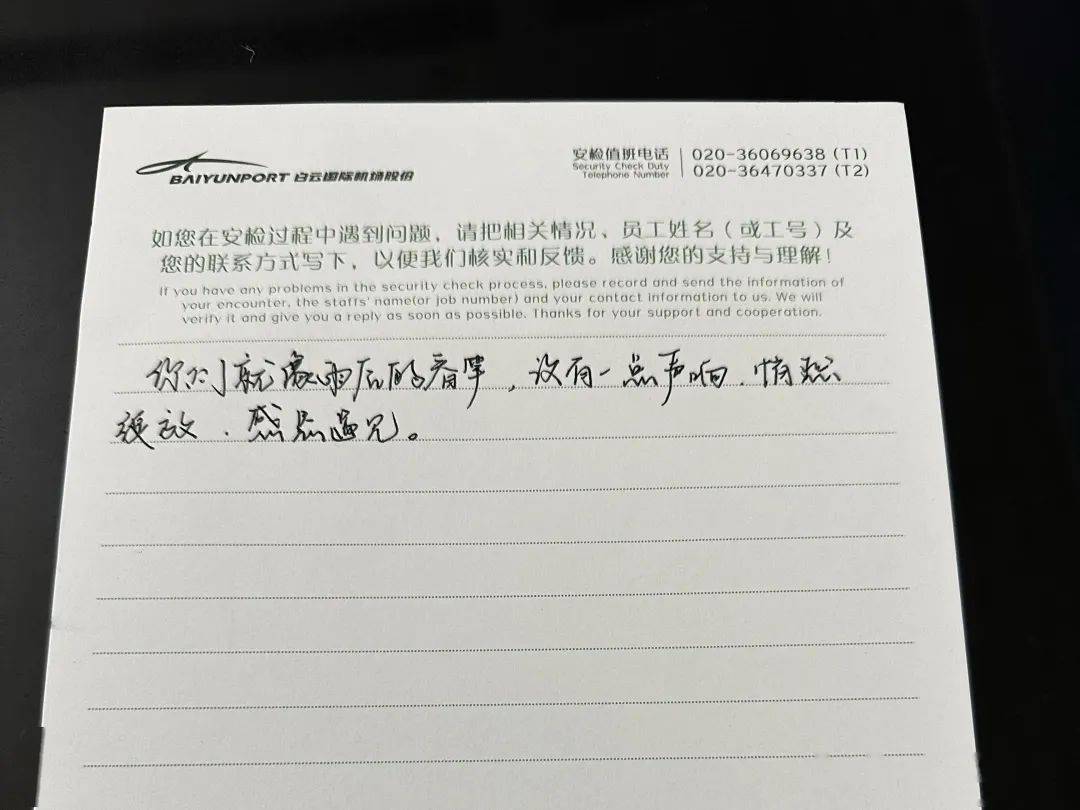 BAIYUNPORT 白云国际机场股份
安检值班电话
Security Check Duty
Telephone Number
020-36069638 (T1)
020-36470337 (T2)
如您在安检过程中遇到问题，请把相关情况、员工姓名（或工号）及
您的联系方式写下，以便我们核实和反馈。感谢您的支持与理解！
If you have any problems in the security check process, please record and send the information of
your encounter, the staffs' name(or job number) and your contact information to us. We will
verify it and give you a reply as soon as possible. Thanks for your support and cooperation.
你们就像雨后的春笋，没有一点声响，悄然
绽放，感恩遇见。